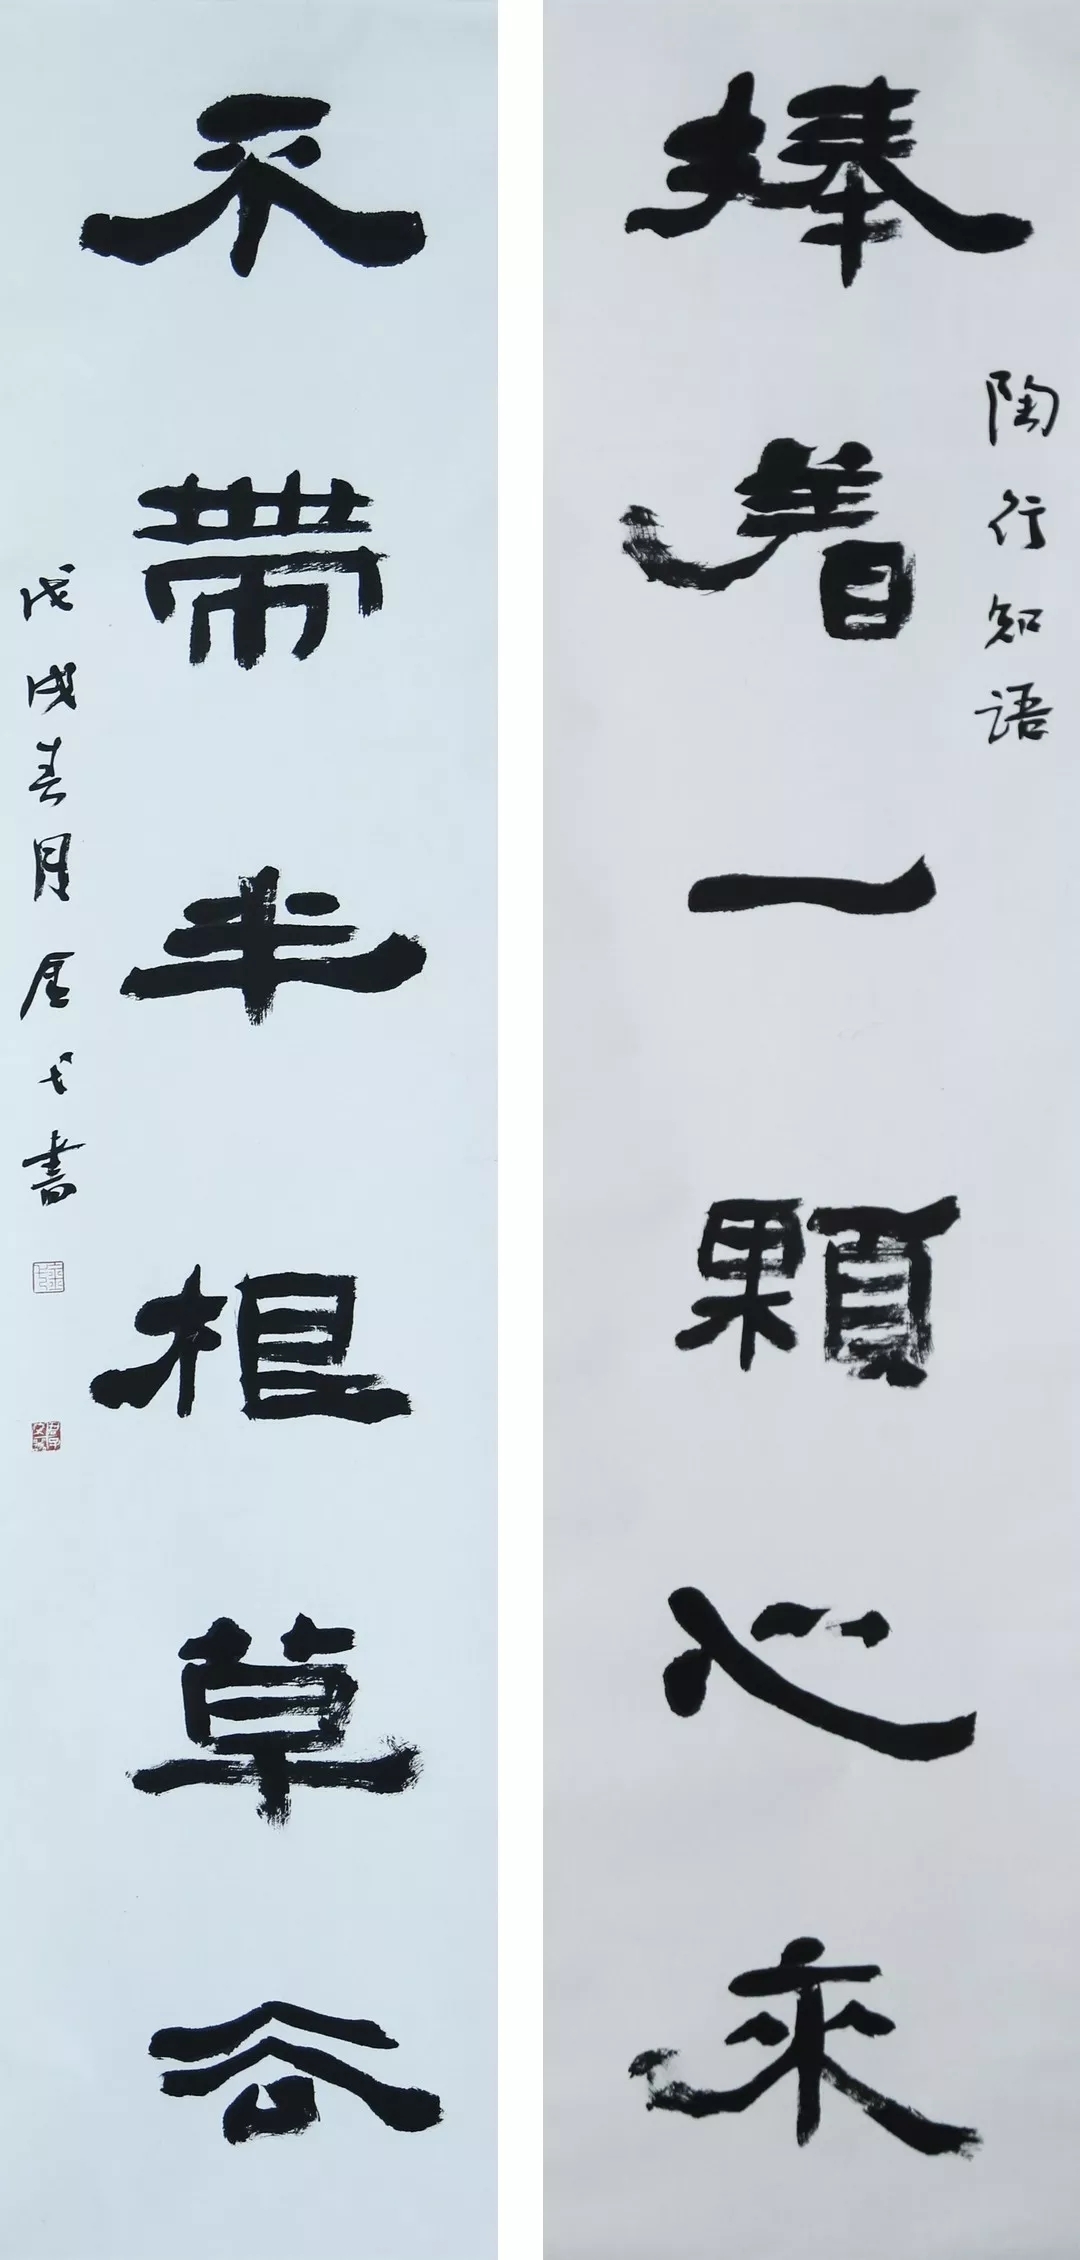 捧着一顆心来
陶行知语
不帶半根草去
戊戌春月 書